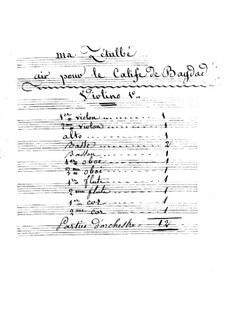 ma Zétulbé
air pour le Calife de Bagdad
Violino 1o
1er violon 1
2me violon 1
alto 1
Basse 2
Basson 1
1er oboe 1
2me oboe 1
1re flute 1
2me flute 1
1er cor 1
2me cor 1
Parties d'orchestre 12